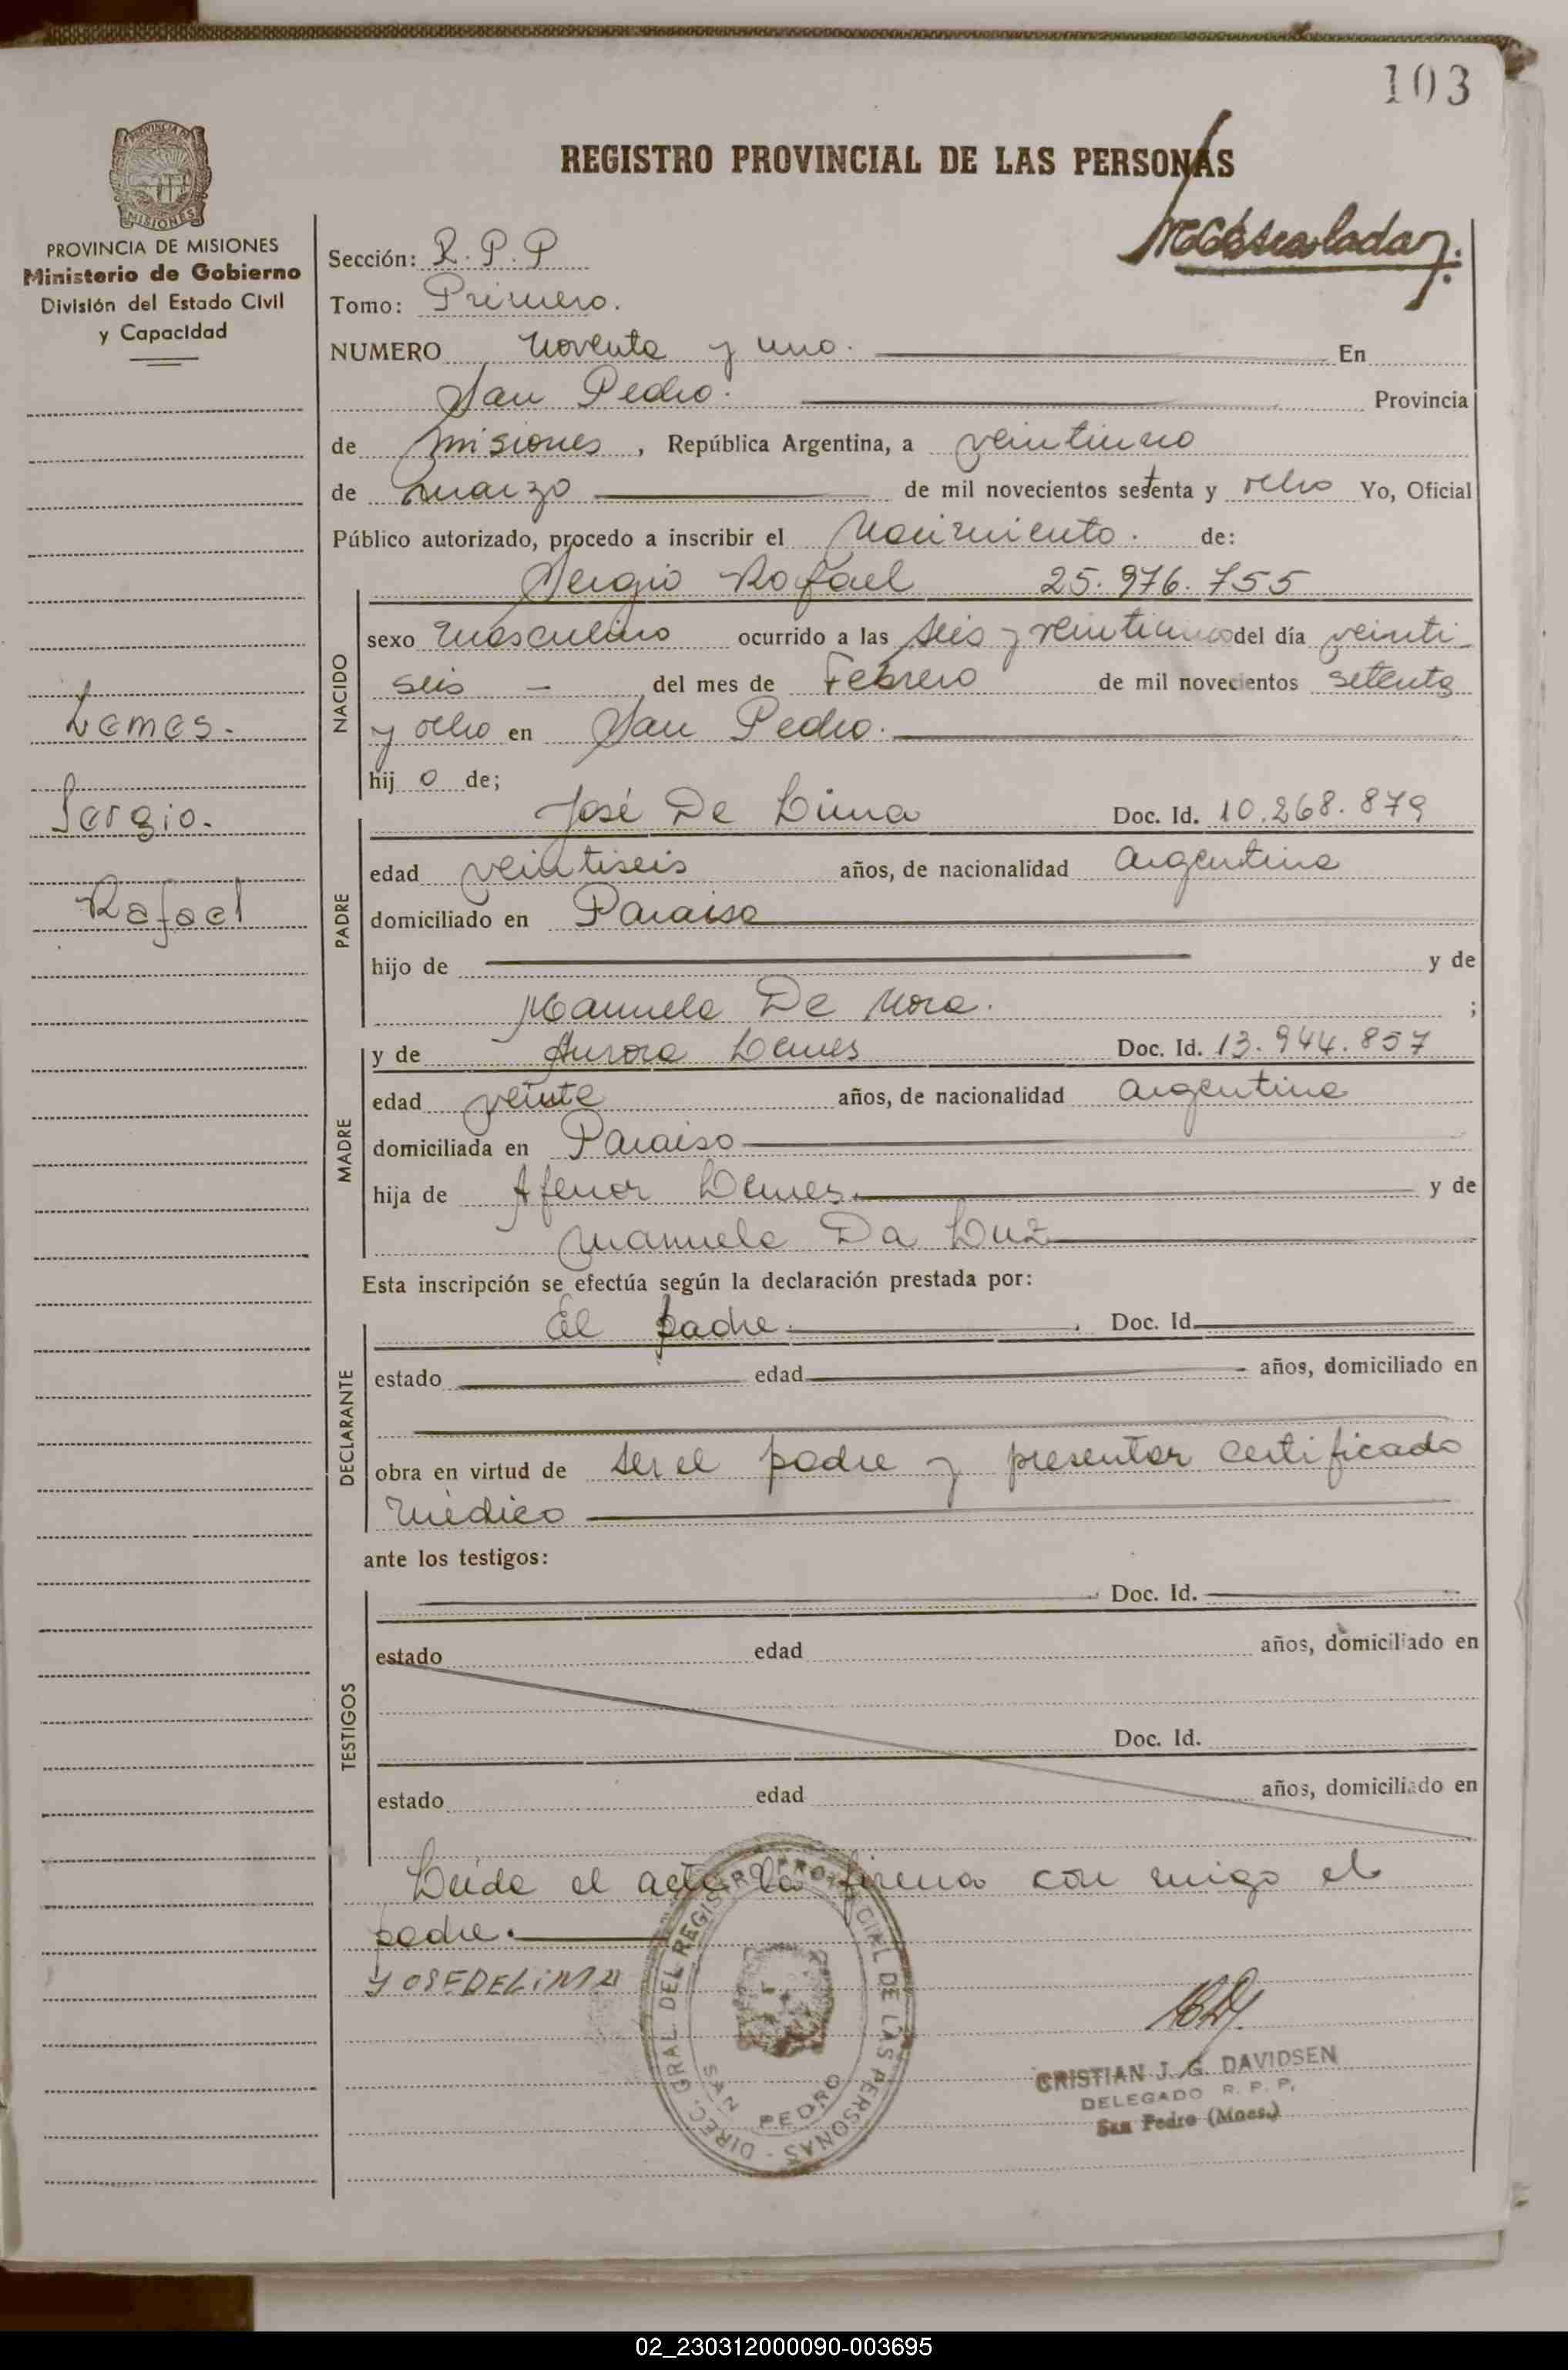 103
PROVINCIA DE MISIONES
REGISTRO PROVINCIAL DE LAS PERSONAS
PROVINCIA DE MISIONES
Ministerio de Gobierno
División del Estado Civil
y Capacidad
Lemes.
Sergio.
Rafael
Sección: R.P.P
Tomo: Primero.
NUMERO Noventa y uno. En
San Pedro. Provincia
de Misiones, República Argentina, a veintiuno
de marzo de mil novecientos setenta y ocho Yo, Oficial
Público autorizado, procedo a inscribir el Nacimiento. de:
Sergio Rafael 25.976.755
NACIDO
sexo Masculino ocurrido a las seis y del día veinti
seis - del mes de Febrero de mil novecientos setenta
y ocho en San Pedro.
hijo de;
PADRE
José De Lima Doc. Id. 10.268.879
edad veintiseis años, de nacionalidad argentina
domiciliado en Paraiso
hijo de y de
Manuela De ;
MADRE
y de Aurora Lemes Doc. Id. 13.944.857
edad veinte años, de nacionalidad argentina
domiciliada en Paraiso
hija de Lemes y de
Manuela Da Luz
Esta inscripción se efectúa según la declaración prestada por:
DECLARANTE
El padre. Doc. Id.
estado edad años, domiciliado en
obra en virtud de ser el padre y presentar certificado
médico
ante los testigos:
TESTIGOS
Doc. Id.
estado edad años, domiciliado en
Doc. Id.
estado edad años, domiciliado en
Leida el acta la firma con migo el
padre.
YOSEDELiMA
DIREC. GRAL. DEL REGISTRO PROVINCIAL DE LAS PERSONAS -
SAN PEDRO
CRISTIAN J. G. DAVIDSEN
DELEGADO R. P. P.
San Pedro (Mnes.)
02_230312000090-003695